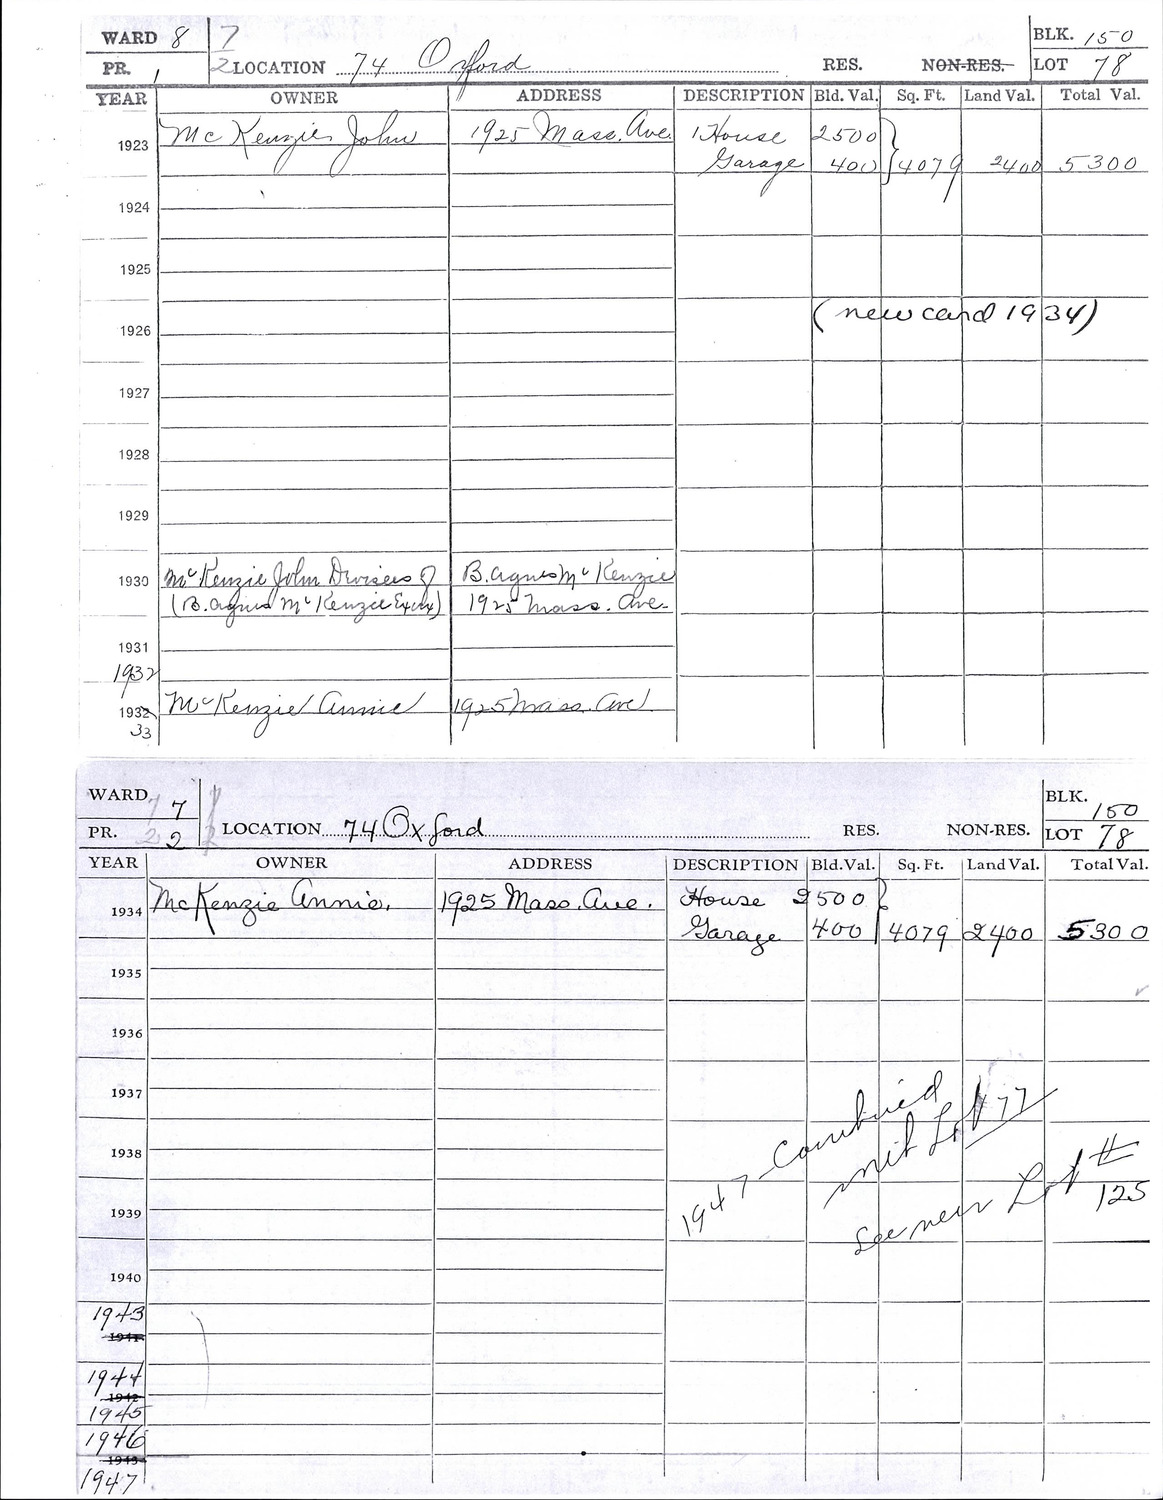 WARD 8 7 BLK. 150
PR. 1 2 LOCATION 74 Oxford RES. NON-RES. LOT 78
YEAR OWNER ADDRESS DESCRIPTION Bld. Val. Sq. Ft. Land Val. Total Val.
1923 McKenzie John 1925 Mass. Ave. 1 House 2500
Garage 400 4079 2400 5300
1924
1925
1926 (new card 1934)
1927
1928
1929
1930 McKenzie John Devisees of B. Agnes McKenzie
(B. Agnes McKenzie Exctrx) 1925 Mass. Ave.
1931
1932
1932 McKenzie Annie 1925 Mass. Ave
33
WARD 7 7 BLK. 150
PR. 2 2 LOCATION 74 Oxford RES. NON-RES. LOT 78
YEAR OWNER ADDRESS DESCRIPTION Bld. Val. Sq. Ft. Land Val. Total Val.
1934 McKenzie Annie. 1925 Mass. Ave. House 2500
Garage 400 4079 2400 5300
1935
1936
1937
1938
1939
1940
1947 - Combined
with Lot 77
See new Lot #
125
1943
1941
1944
1942
1945
1946
1943
1947